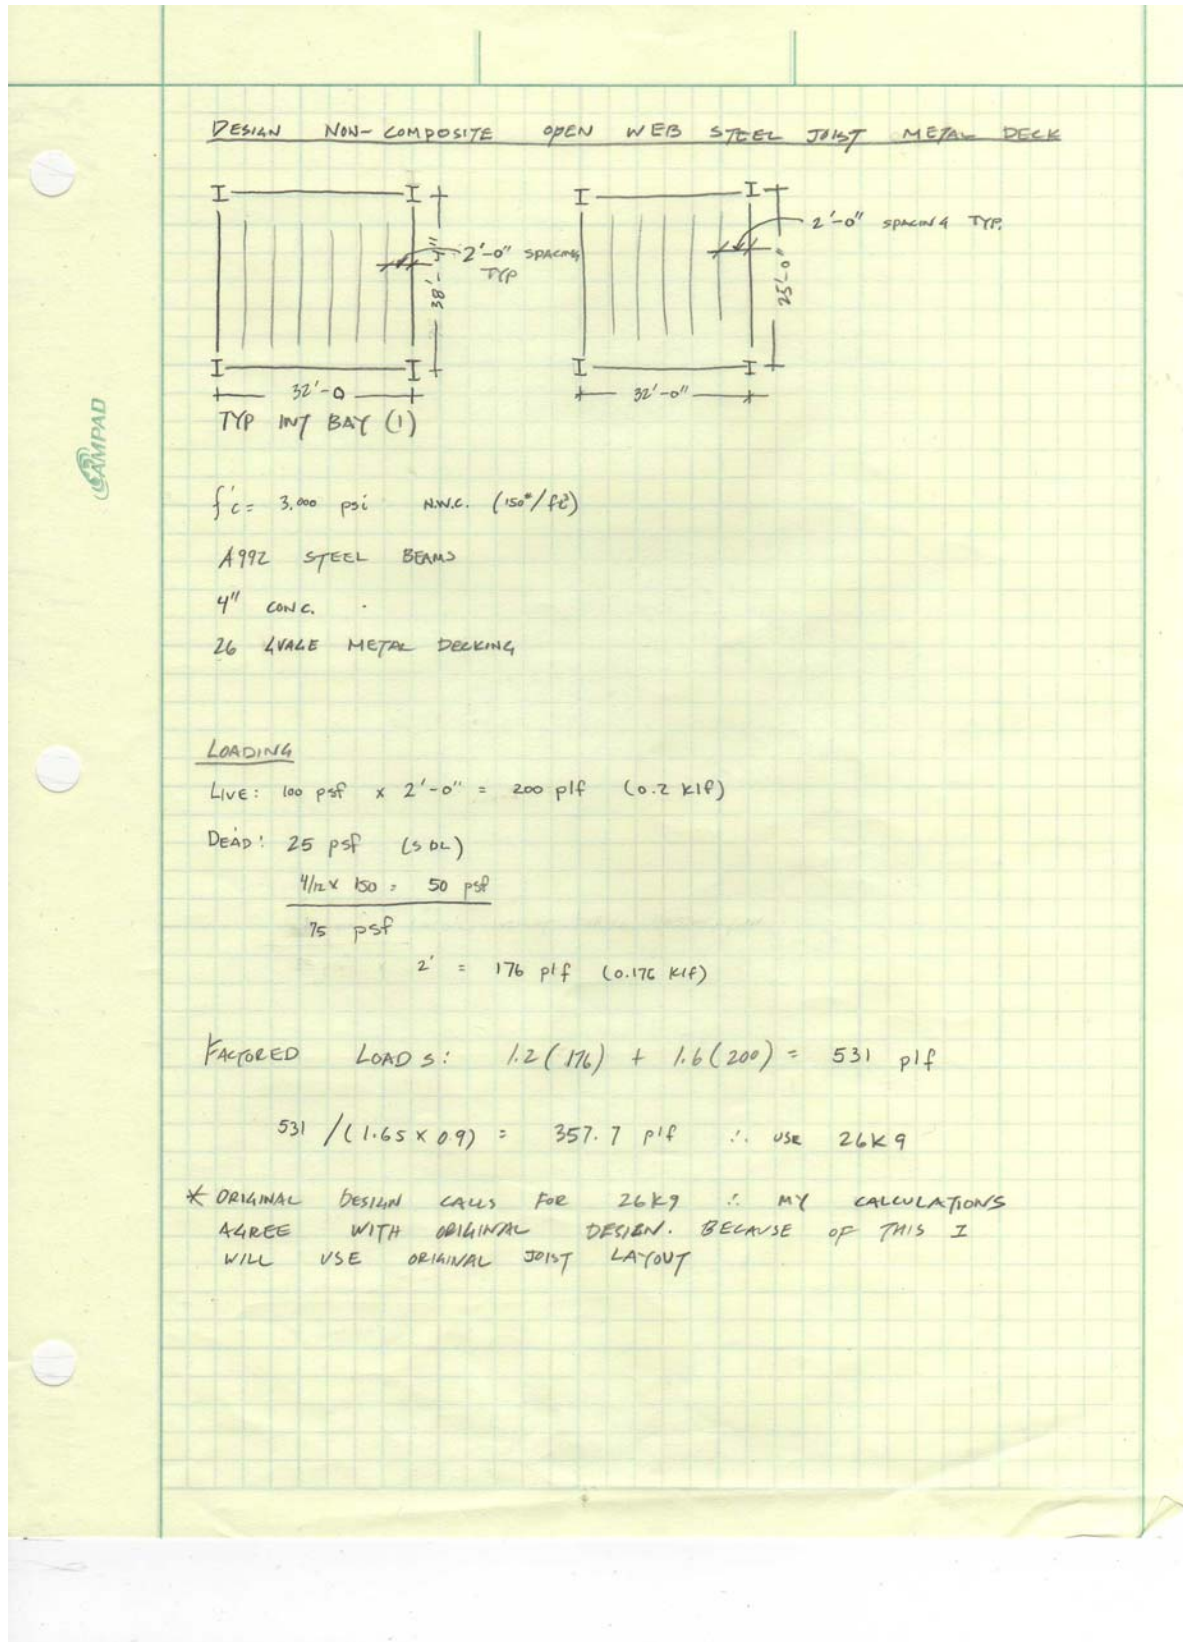 DESIGN NON-COMPOSITE OPEN WEB STEEL JOIST METAL DECK
I I I I
2'-0" SPACING TYP.
2'-0" SPACING
TYP
38'-4"
25'-0"
I I I I
32'-0 32'-0"
TYP INT BAY (1)
CAMPAD
f'c = 3,000 psi N.W.C. (150#/ft³)
A992 STEEL BEAMS
4" CONC.
26 GUAGE METAL DECKING
LOADING
LIVE: 100 psf x 2'-0" = 200 plf (0.2 klf)
DEAD: 25 psf (SDL)
4/12 x 150 = 50 psf
75 psf
2' = 176 plf (0.176 klf)
FACTORED LOADS: 1.2(176) + 1.6(200) = 531 plf
531 /(1.65 x 0.9) = 357.7 plf ∴ USE 26K9
* ORIGINAL DESIGN CALLS FOR 26K9 ∴ MY CALCULATIONS
AGREE WITH ORIGINAL DESIGN. BECAUSE OF THIS I
WILL USE ORIGINAL JOIST LAYOUT